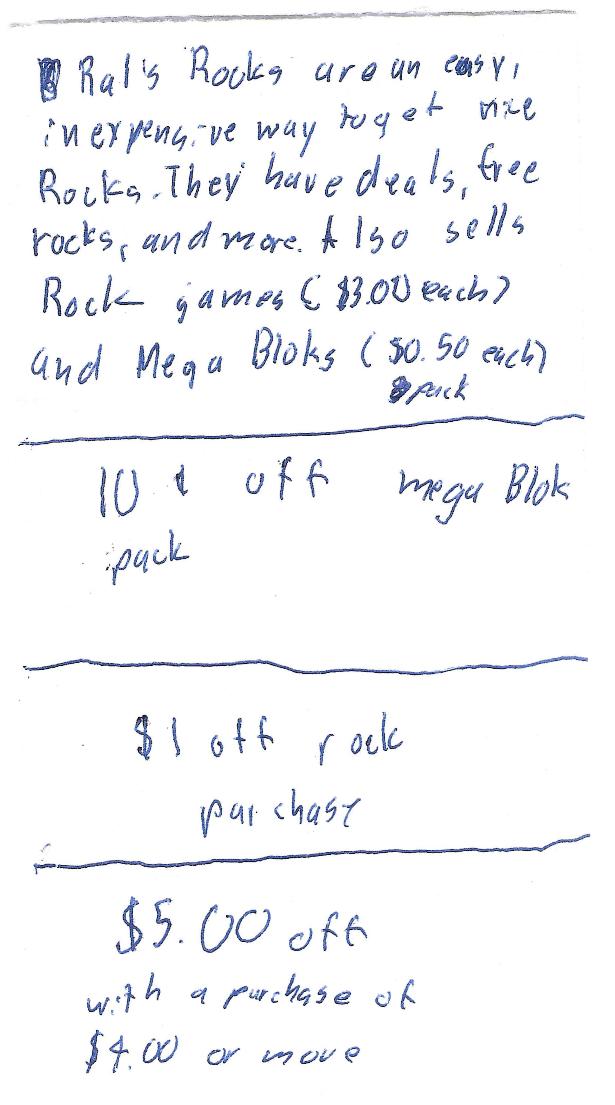 Ral's Rocks are an easy,
inexpensive way to get nice
Rocks. They have deals, free
rocks, and more. Also sells
Rock games ($3.00 each)
and Mega Bloks ($0.50 each)
pack
10¢ off mega Blok
pack
$1 off rock
purchase
$5.00 off
with a purchase of
$4.00 or more